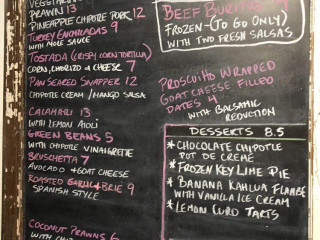 VEGETARIAN
PRAWN 13
PINEAPPLE CHIPOTLE PORK 12
TURKEY ENCHILADAS 9
WITH MOLE SAUCE
TOSTADA (CRISPY CORN TORTILLA)
CORN, CHORIZO & CHEESE 7
PAN SEARED SNAPPER 12
CHIPOTLE CREAM / MANGO SALSA
CALAMARI 13
WITH LEMON AIOLI
GREEN BEANS 5
WITH CHIPOTLE VINAIGRETTE
BRUSCHETTA 7
AVOCADO + GOAT CHEESE
ROASTED GARLIC & BRIE 9
SPANISH STYLE
COCONUT PRAWNS 6
BEEF BURRITO
FROZEN - (TO GO ONLY)
WITH TWO FRESH SALSAS
PROSCUITTO WRAPPED
GOAT CHEESE FILLED
DATES 4
WITH BALSAMIC
REDUCTION
DESSERTS 8.5
* CHOCOLATE CHIPOTLE
POT DE CREME
* FROZEN KEY LIME PIE
* BANANA KAHLUA FLAMBE
WITH VANILA ICE CREAM
* LEMON CURD TARTS